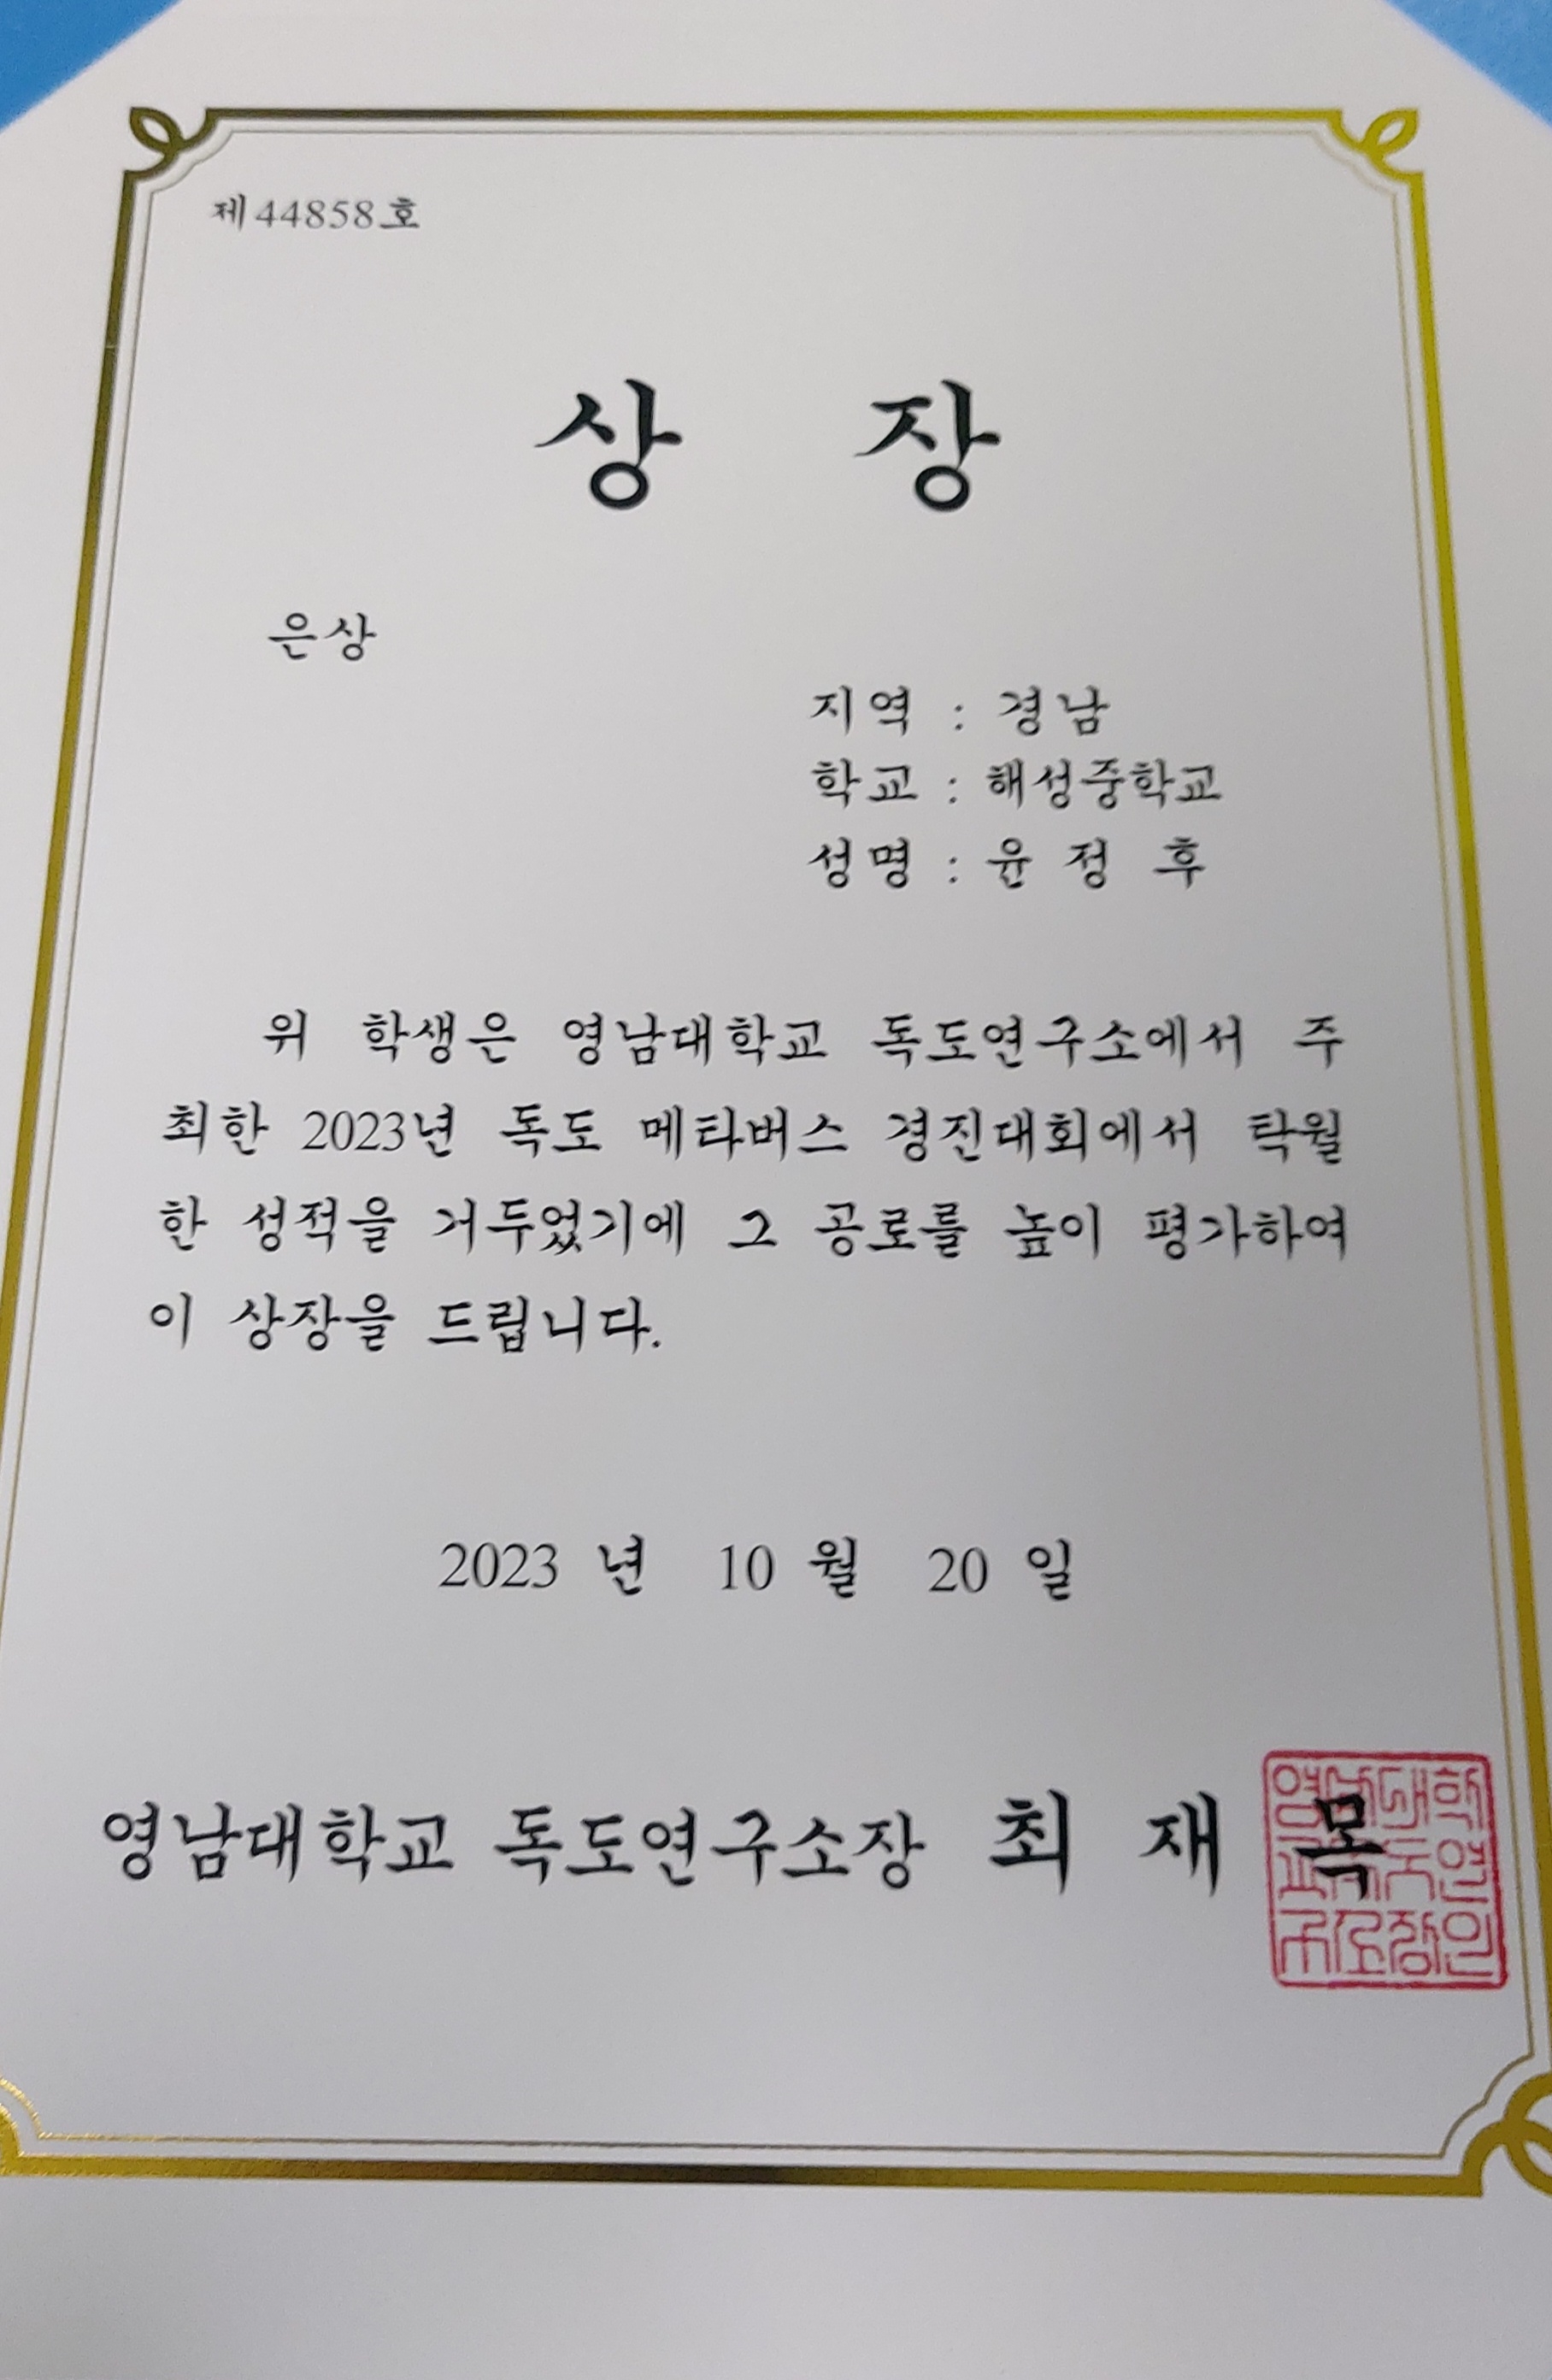 제44858호
상 장
은상
지역 : 경남
학교 : 해성중학교
성명 : 윤 정 후
위 학생은 영남대학교 독도연구소에서 주
최한 2023년 독도 메타버스 경진대회에서 탁월
한 성적을 거두었기에 그 공로를 높이 평가하여
이 상장을 드립니다.
2023 년 10 월 20 일
영남대학교 독도연구소장 최 재 목